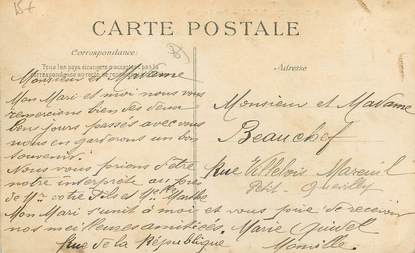 CARTE POSTALE
Correspondance:
Tous les pays étrangers n'acceptent pas la
correspondance au recto se renseigner
Adresse
Monsieur et Madame
Mon Mari et moi nous vous
remercions bien des deux
bons jours passés avec vous
nous en garderons un bon
souvenir.
Nous vous prions d'être
notre interprète au près
de Mr votre Fils et Melle Marthe
Mon Mari s'unit à moi et vous prie de recevoir
nos meilleures amitiées. Marie
Rue de la République
Monville.
Monsieur et Madame
Beauchef
Rue Villebois Mareuil
Petit-Quevilly